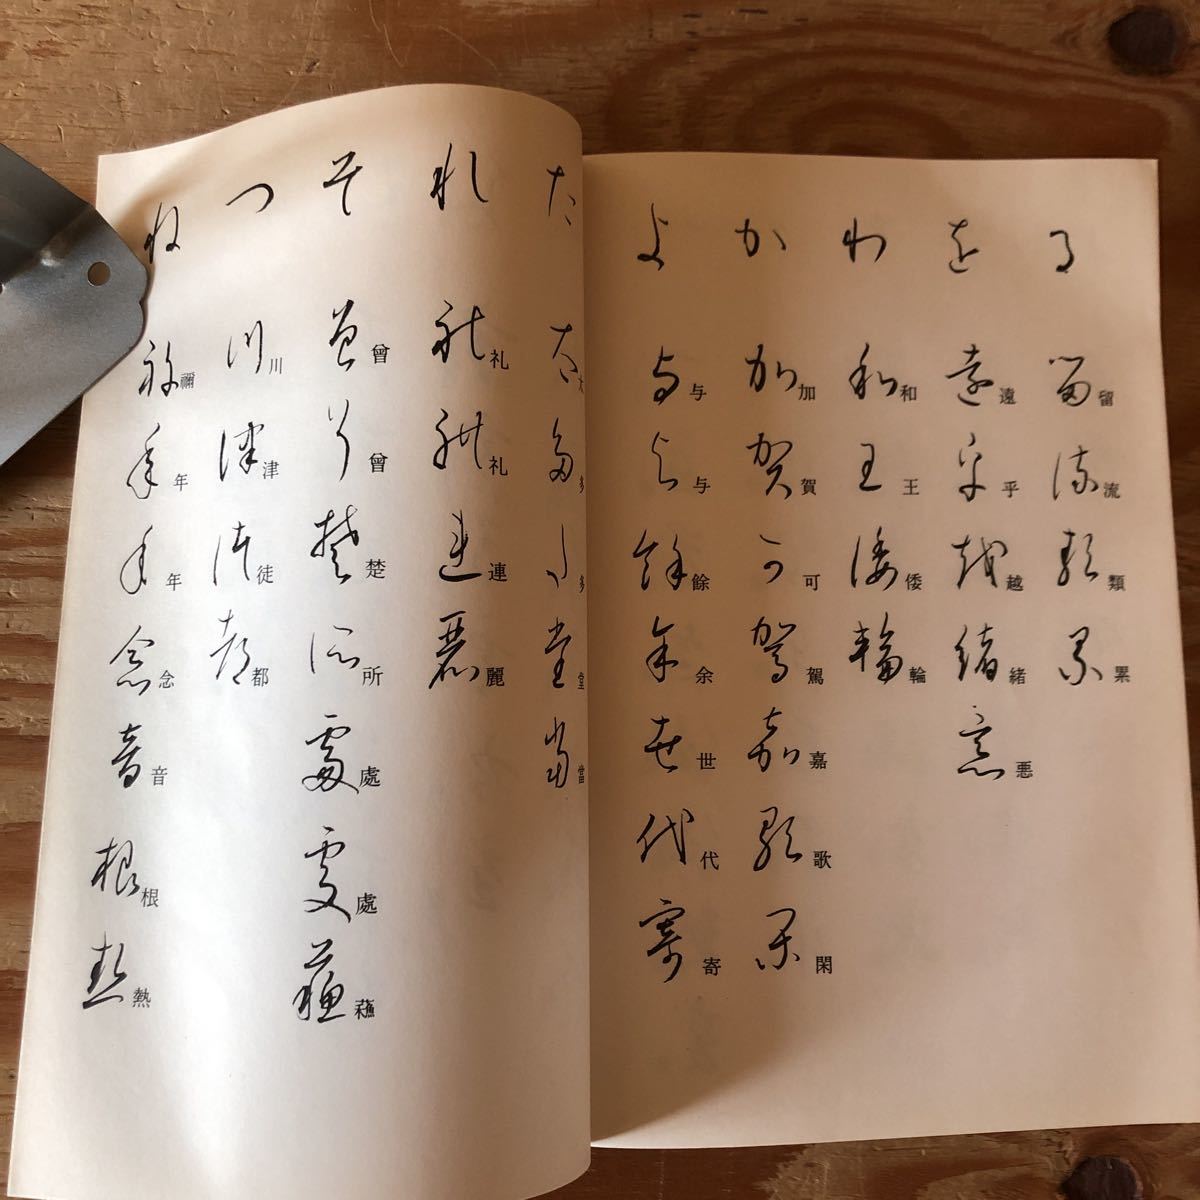 る 留 流 類 累
を 遠 乎 越 緒 悪
わ 和 王 倭 輪
か 加 賀 可 駕 嘉 歌 閑
よ 与 与 餘 余 世 代 寄
た 太 多 多 堂 當
れ 礼 礼 連 麗
そ 曾 曾 楚 所 處 處 蘓
つ 川 津 徒 都
ね 禰 年 年 念 音 根 熱